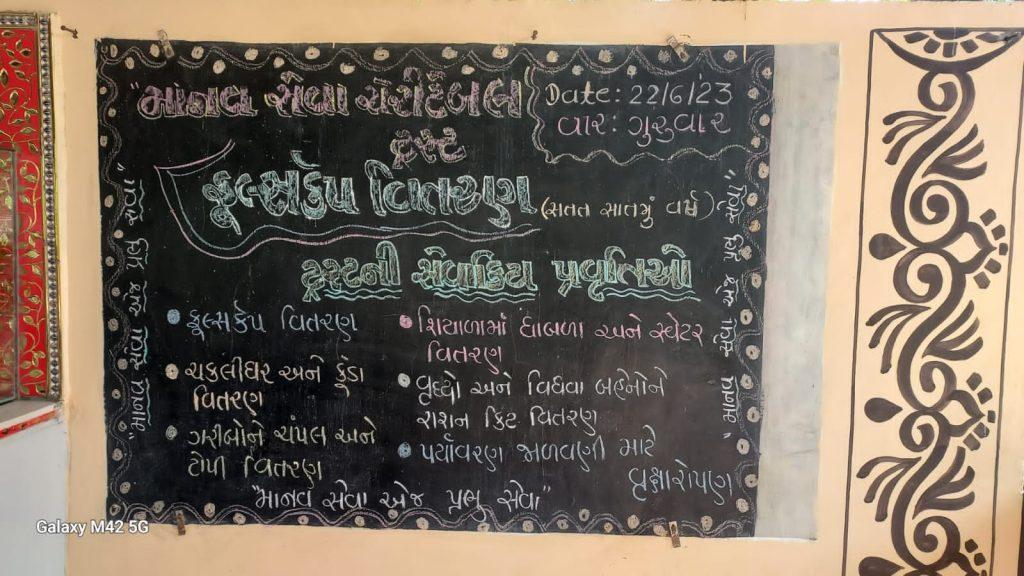 "માનવ સેવા ચેરીટેબલ
ટ્રસ્ટ
Date: 22/6/23
વાર: ગુરુવાર
ફુલ્સકેપ વિતરણ (સતત સાતમું વર્ષ)
ટ્રસ્ટની સેવાકિય પ્રવૃતિઓ
• ફુલ્સકેપ વિતરણ
• ચકલીઘર અને કુંડા
વિતરણ
• ગરીબોને ચંપલ અને
ટોપી વિતરણ
• શિયાળામાં ધાબળા અને સ્વેટર
વિતરણ
• વૃધ્ધો અને વિધવા બહેનોને
રાશન કિટ વિતરણ
• પર્યાવરણ જાળવણી માટે
વૃક્ષારોપણ
"માનવ સેવા એજ પ્રભુ સેવા"
"માનવ સેવા એજ પ્રભુ સેવા"
"માનવ સેવા એજ પ્રભુ સેવા"
Galaxy M42 5G